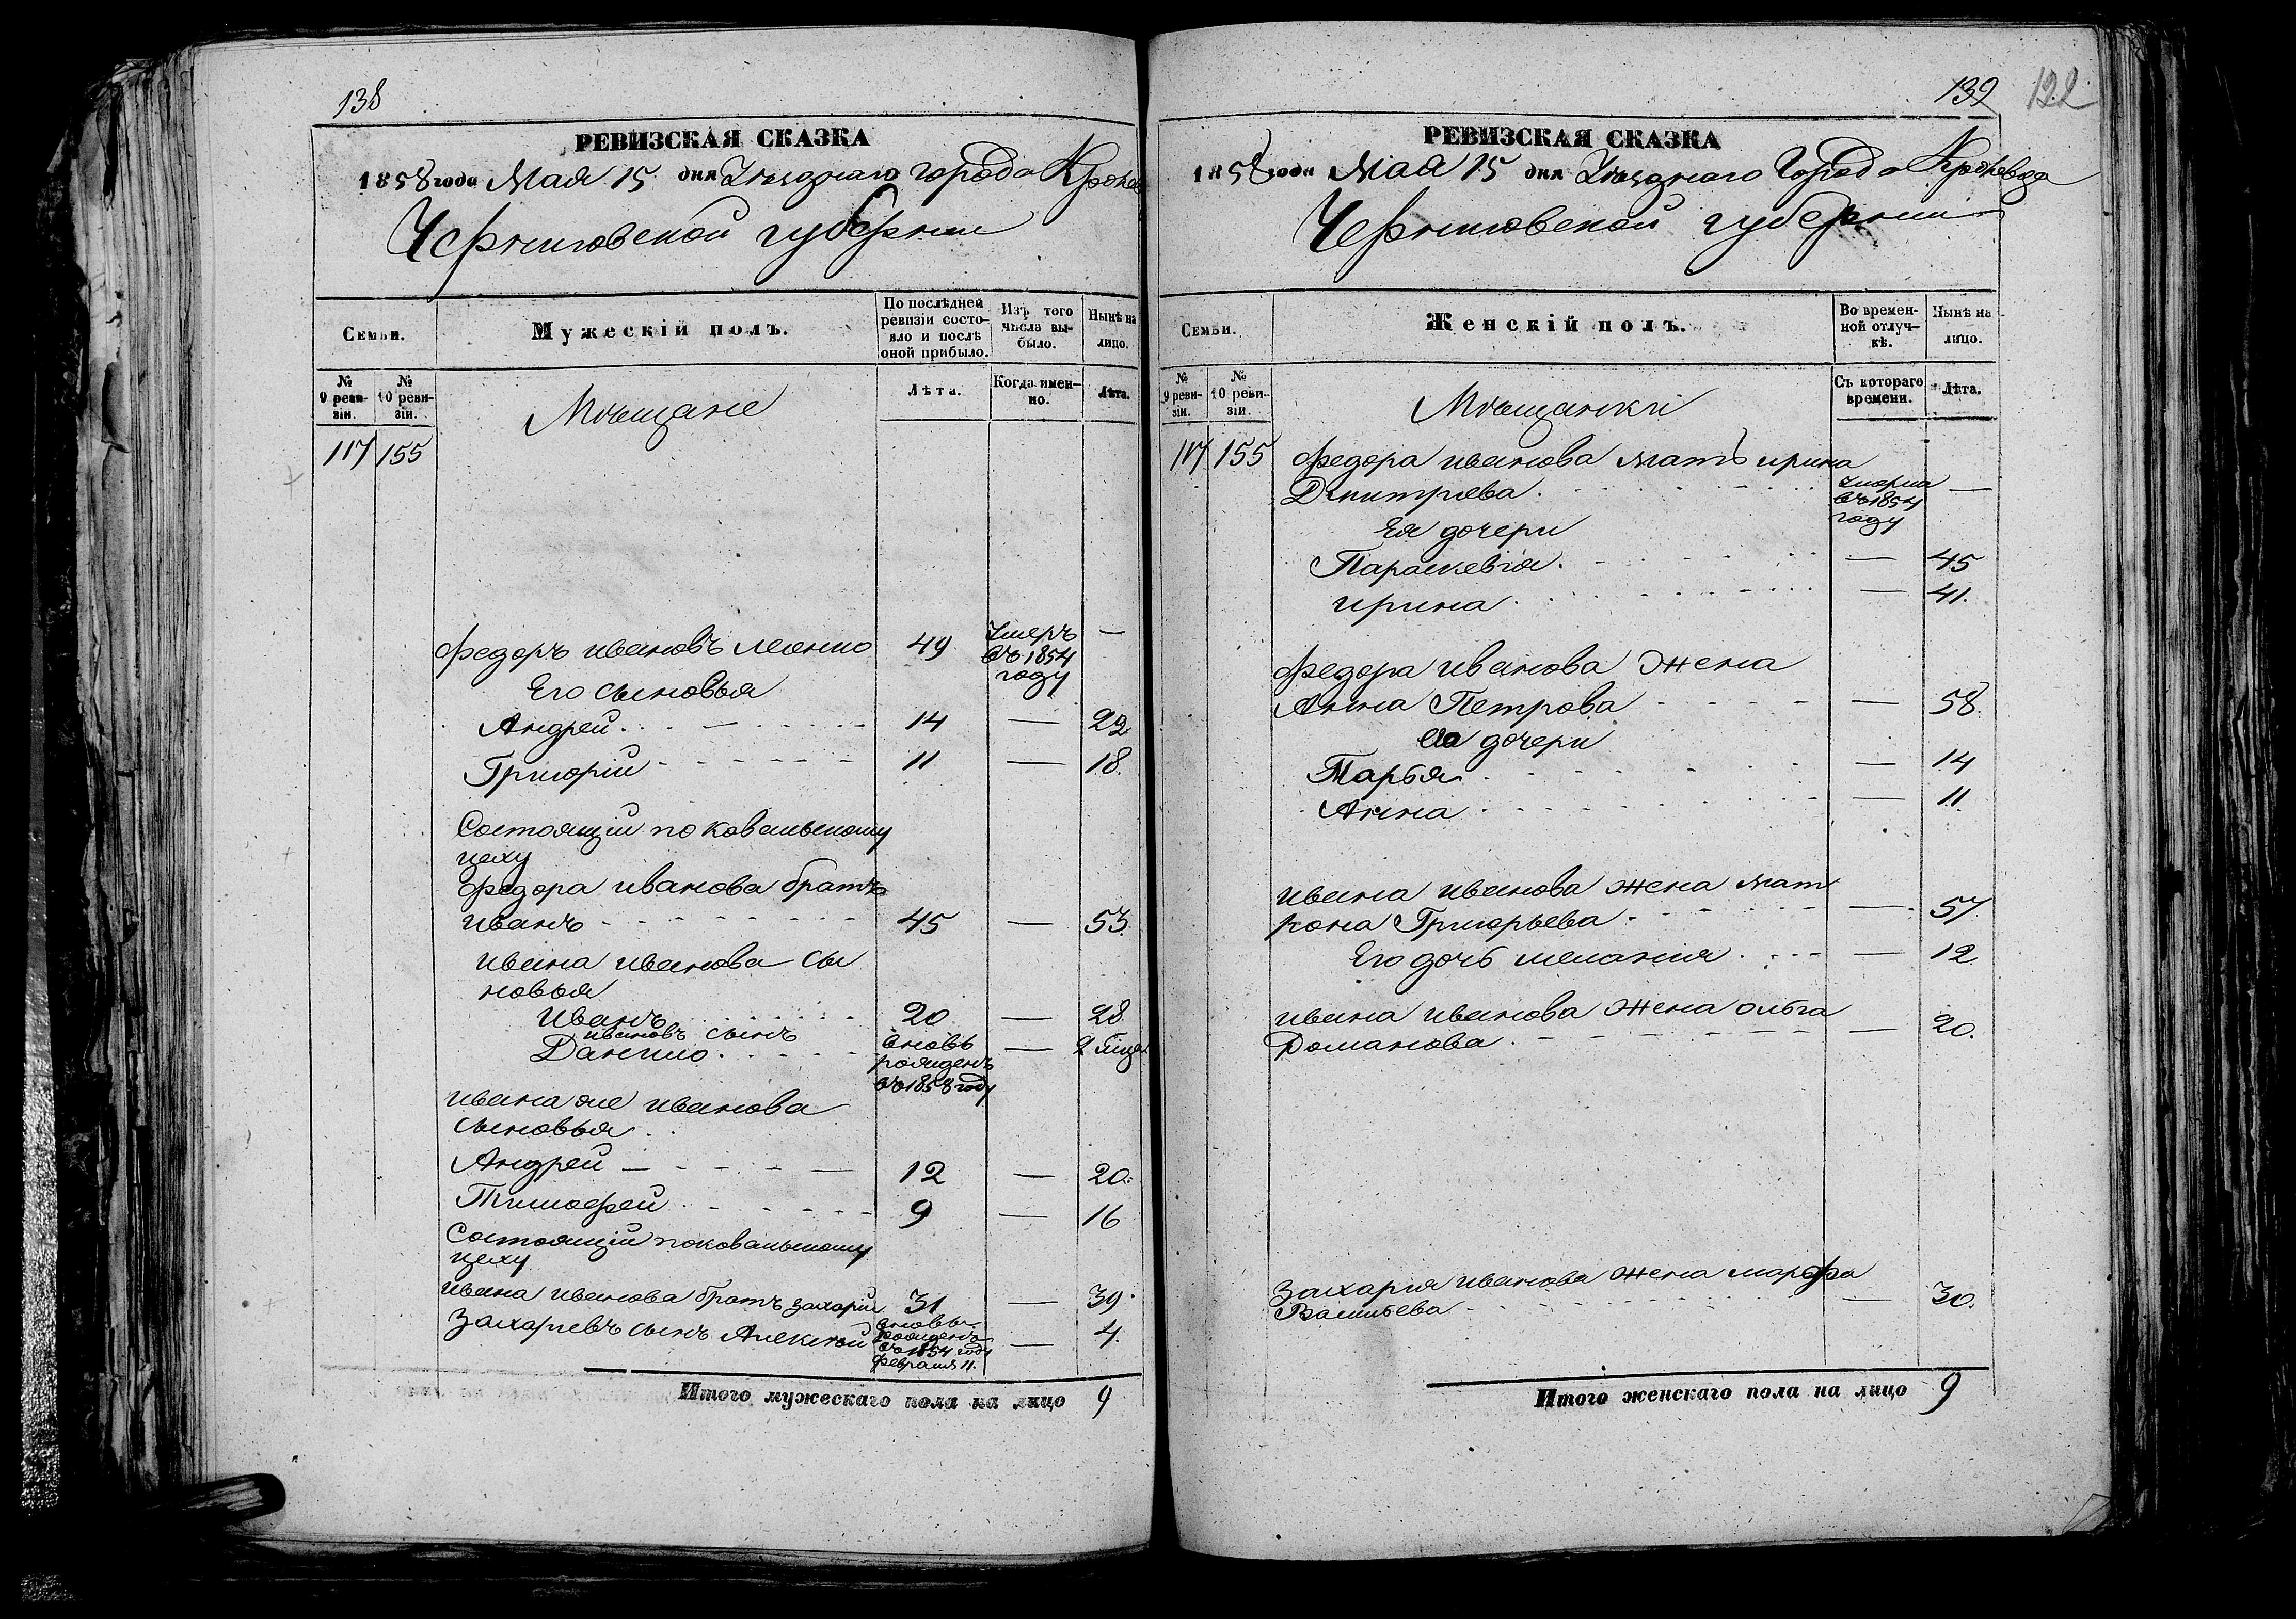 138
РЕВИЗСКАЯ СКАЗКА
1858 года Мая 15 дня Уѣзднаго города Кролев
Черниговской губернии
Семьи.
Мужескій полъ.
По послѣдней
ревизіи состо-
яло и послѣ
оной прибыло.
Изъ того
числа вы-
было.
Нынѣ на
лицо.
№
9 реви-
зіи.
№
10 реви-
зіи.
Мѣщане
Лѣта.
Когда имен-
но.
Лѣта.
117 155
Федоръ ивановъ 49 Умеръ —
въ 1854
году
Его сыновья
Андрей 14 — 22
Григорій 11 — 18.
Состоящій по ковальскому
цеху
Федора иванова братъ
иванъ 45 — 53.
ивана иванова сы
новья
Иванъ 20 — 28
ивановъ сынъ
Данило вновь — 2
рожденъ
въ 1858 году
ивана же иванова
сыновья
Андрей 12 — 20.
Тимофей 9 — 16
Состоящій по ковальскому
цеху
ивана иванова братъ захарій 31 — 39.
Захаріевъ сынъ Алексѣй вновь — 4.
рожденъ
въ 1854 году
февраля 11.
Итого мужескаго пола на лицо 9
139 122
РЕВИЗСКАЯ СКАЗКА
1858 года Мая 15 дня Уѣзднаго Города Кролевца
Черниговской губернии
Семьи.
Женскій полъ.
Во времен-
ной отлуч-
кѣ.
Нынѣ на
лицо.
№
9 реви-
зіи.
№
10 реви-
зіи.
Мѣщанки
Съ котораго
времени.
Лѣта.
117 155
Федора иванова мать ирина
Дмитріева. Умерла —
въ 1854
году
Ея дочери
Параскевія. — 45
ирина — 41.
Федора иванова жена
Анна Петрова — 58.
Ея дочери
Марья — 14
Анна — 11.
ивана иванова жена мат
рона Григорьева — 57.
Его дочь меланія — 12.
ивана иванова жена ольга
Романова — 20.
Захарія иванова жена марфа
Васильева — 30.
Итого женскаго пола на лицо 9